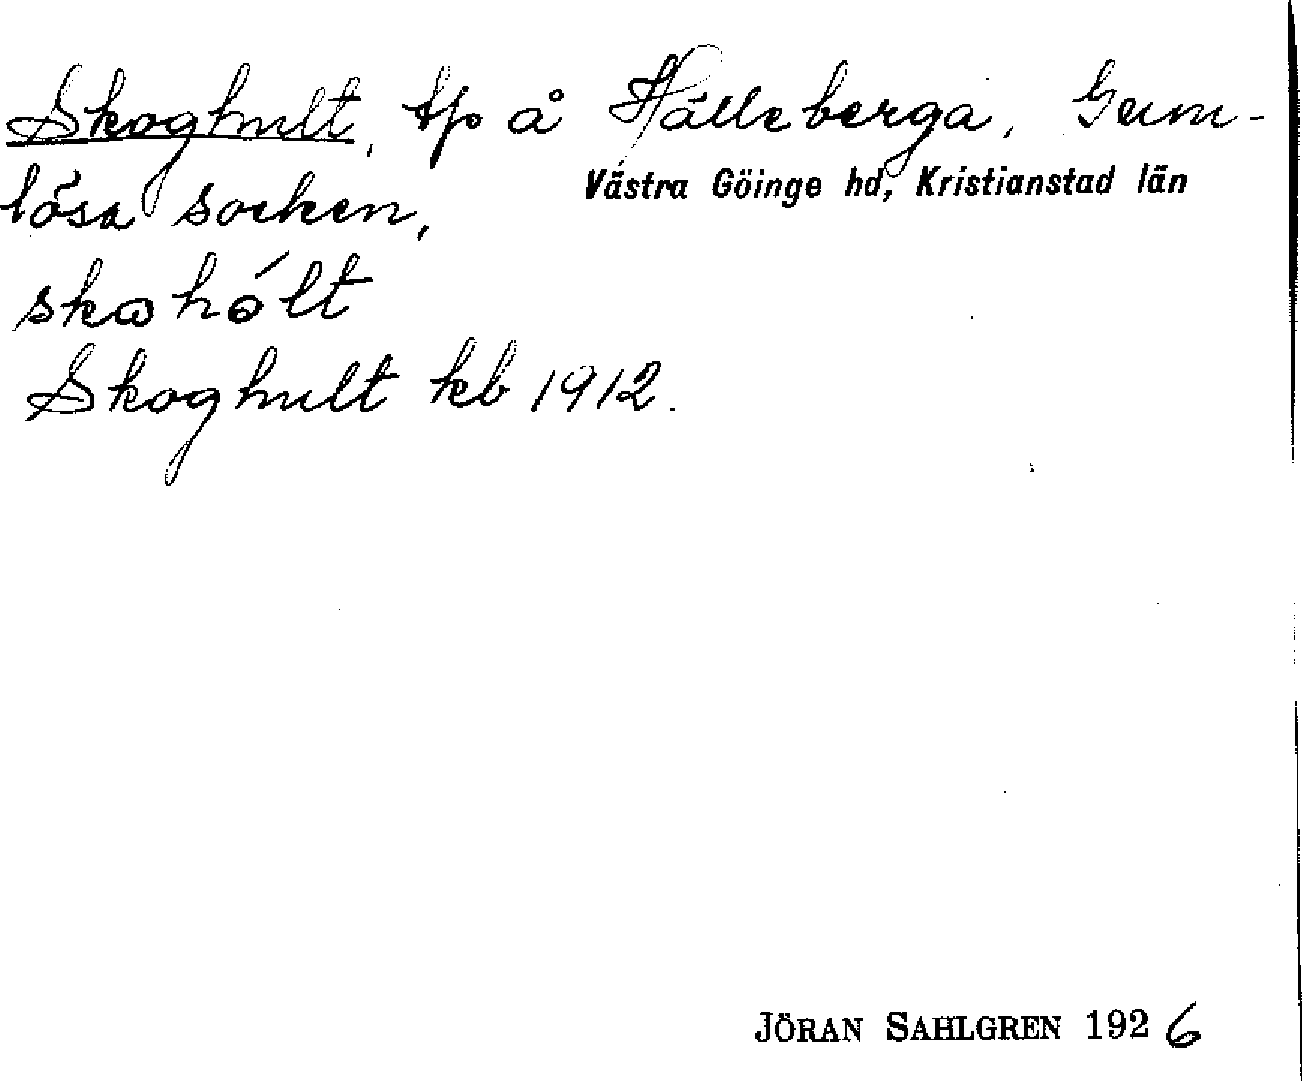 Skoghult, tp å Hälleberga, Gum-
Västra Göinge hd, Kristianstad län
lösa socken,
skohólt
Skoghult kb 1912.
JÖRAN SAHLGREN 1926